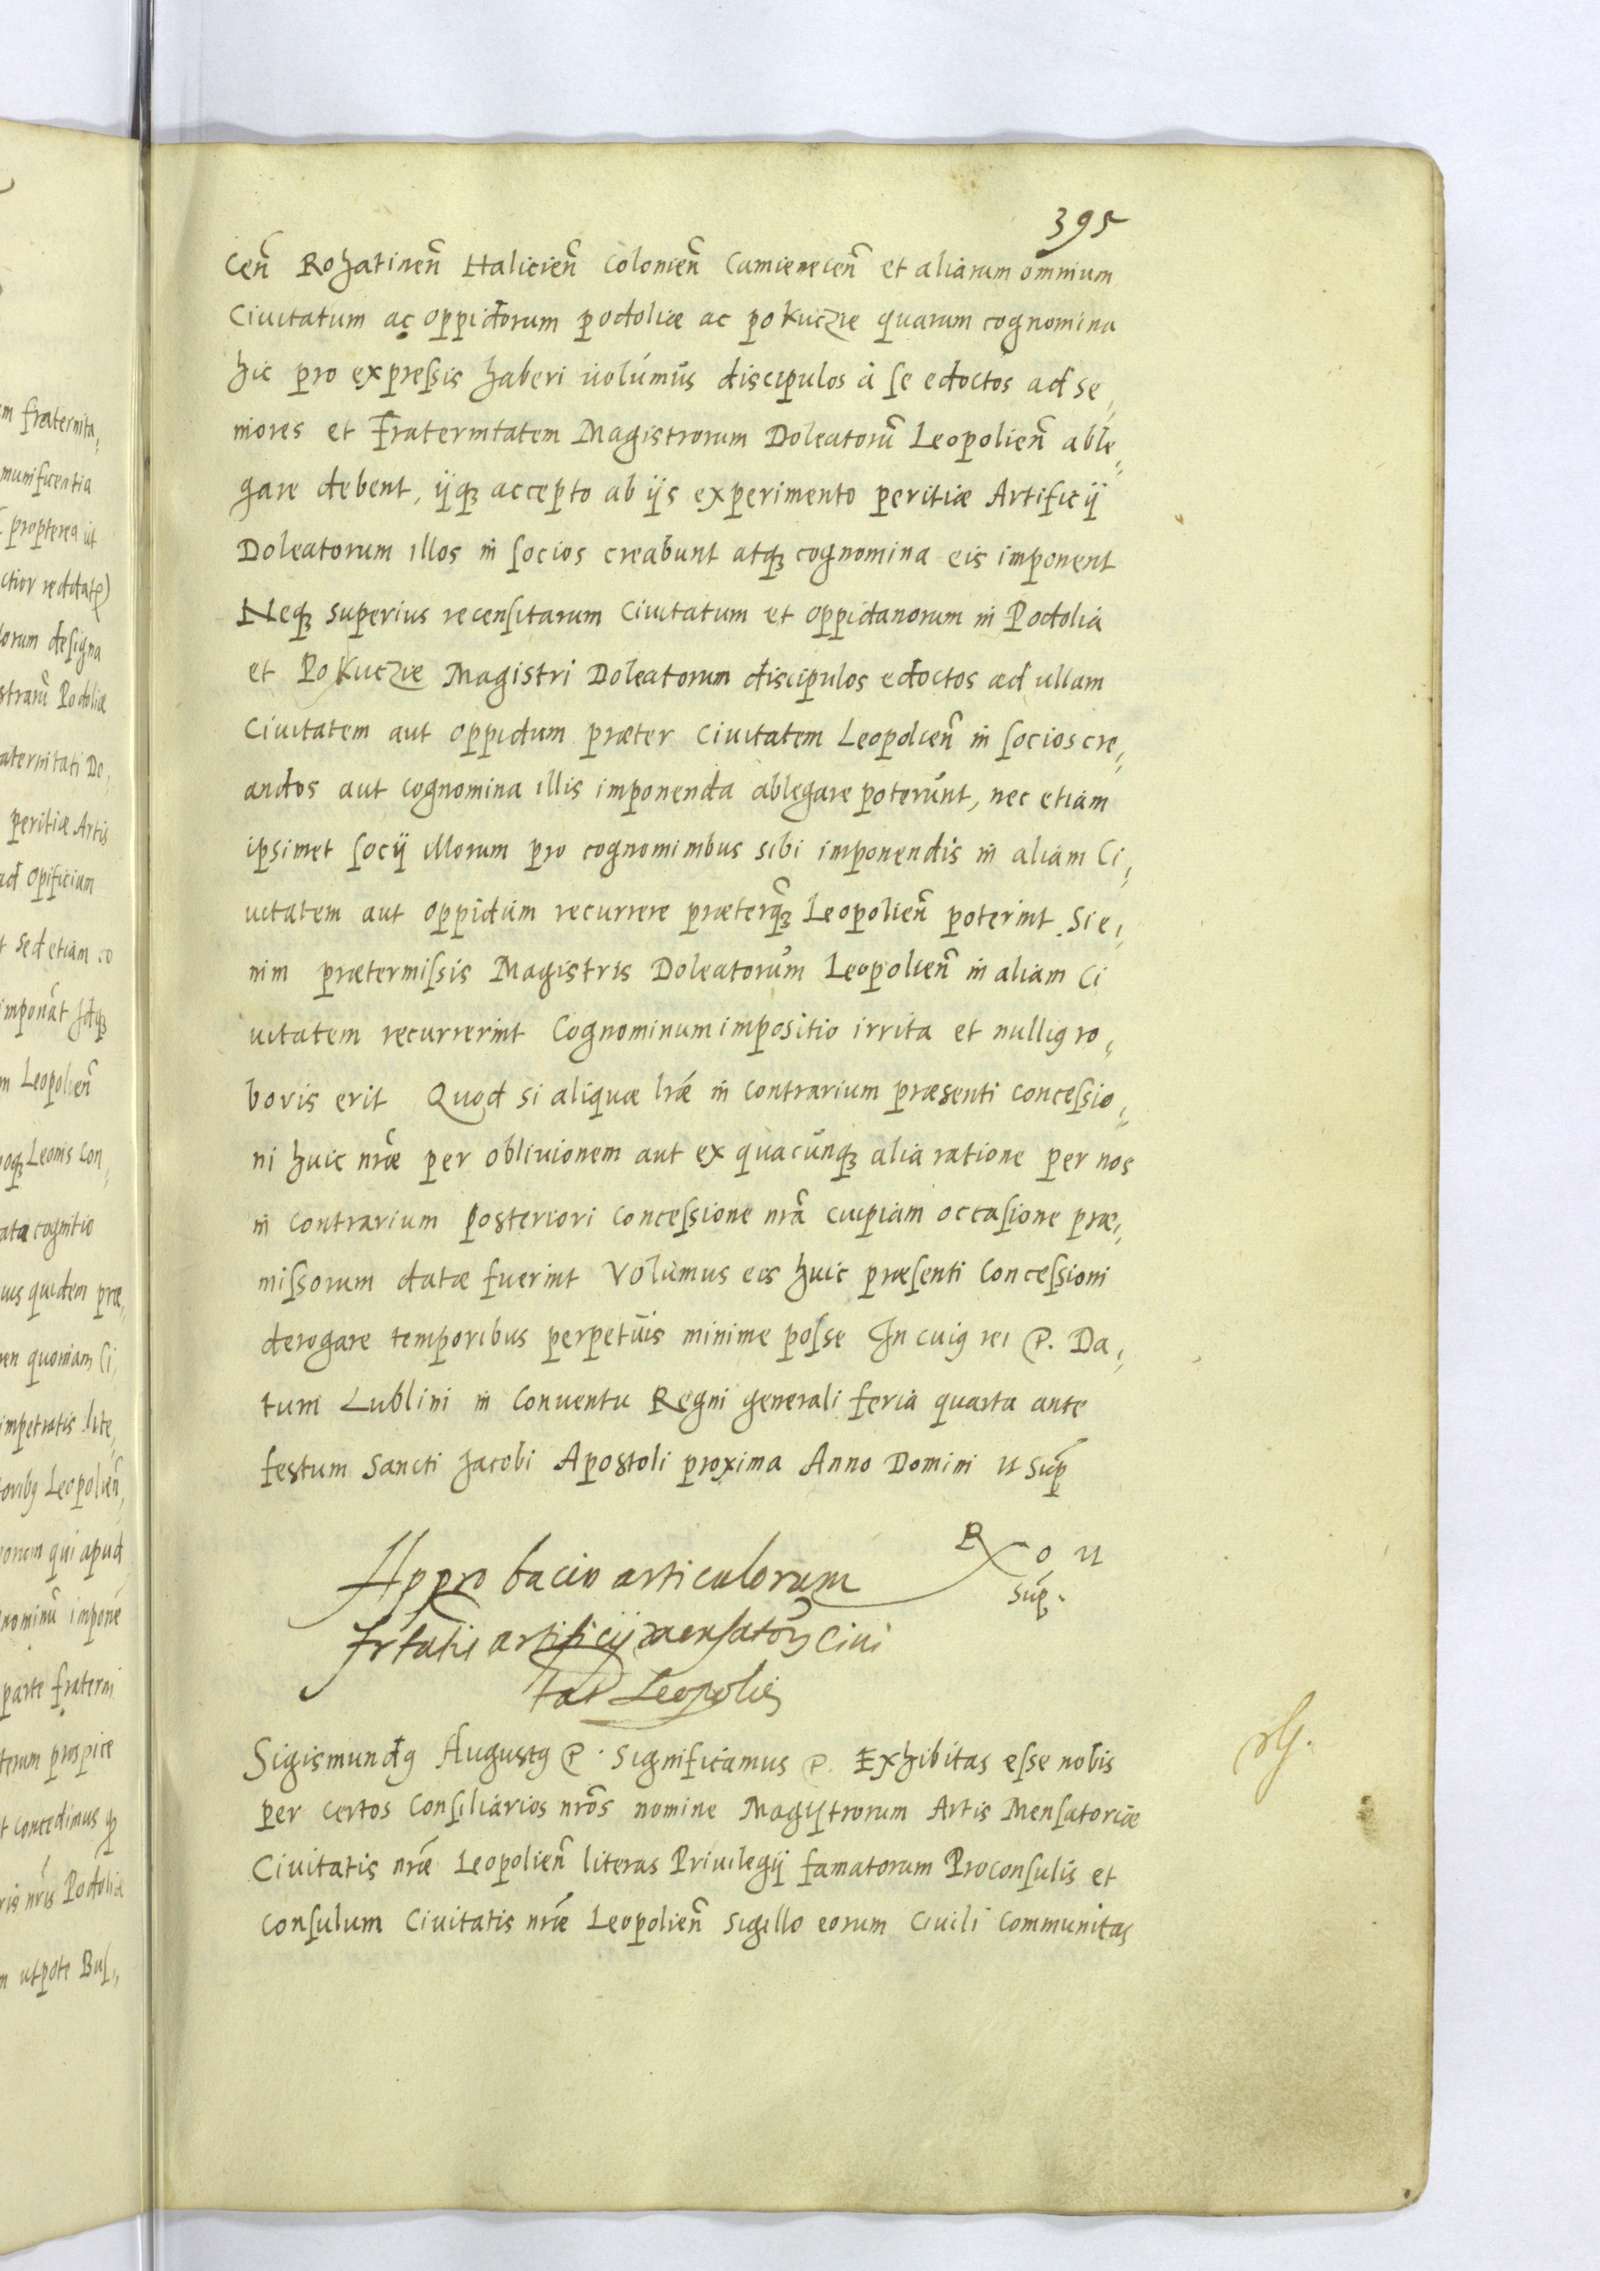 395
Ceñ Rohatineñ Halicieñ Colomeñ Camieneceñ et aliarum omnium
Ciuitatum ac oppidorum podoliæ ac pokuczie quarum cognomina
hic pro expressis haberi uolumus discipulos à se edoctos ad se,,
niores et Fraternitatem Magistrorum Doleatorū Leopolieñ able,,
gare debent, ijq3 accepto ab ijs experimento peritiæ Artificij
Doleatorum illos in socios creabunt atq3 cognomina eis imponent
Neq3 superius recensitarum Ciuitatum et oppidanorum in Podolia
et Pokuczie Magistri Doleatorum discipulos edoctos ad ullam
Ciuitatem aut oppidum præter Ciuitatem Leopolieñ in socios cre,,
andos aut cognomina illis imponenda ablegare poterunt, nec etiam
ipsimet socij illorum pro cognominibus sibi imponendis in aliam Ci,,
uitatem aut oppidum recurrere præterq̃3 Leopolieñ poterint. Si e,,
nim prætermissis Magistris Doleatorum Leopolieñ in aliam Ci
uitatem recurrerint Cognominum impositio irrita et nulli9 ro,,
boris erit Quod si aliquæ lræ in contrarium præsenti concessio,,
ni huic nr̃æ per obliuionem aut ex quacunq3 alia ratione per nos
in contrarium posteriori concessione nrã cuipiam occasione præ,,
missorum datæ fuerint Volumus eis huic præsenti Concessioni
derogare temporibus perpetuis minime posse In cui9 rei etc. Da,,
tum Lublini in Conuentu Regni generali feria quarta ante
festum Sancti Jacobi Apostoli proxima Anno Domini ut sup
R o ut
sup.
Approbacio articulorum
frtatis artificij mensator3 Ciui
tat Leopolien
Sigismund9 August9 etc. Significamus etc. Exhibitas esse nobis
per certos Consiliarios nrõs nomine Magistrorum Artis Mensatoriæ
Ciuitatis nræ Leopolieñ literas Priuilegij famatorum Proconsulis et
Consulum Ciuitatis nræ Leopolieñ sigillo eorum Ciuili communitas